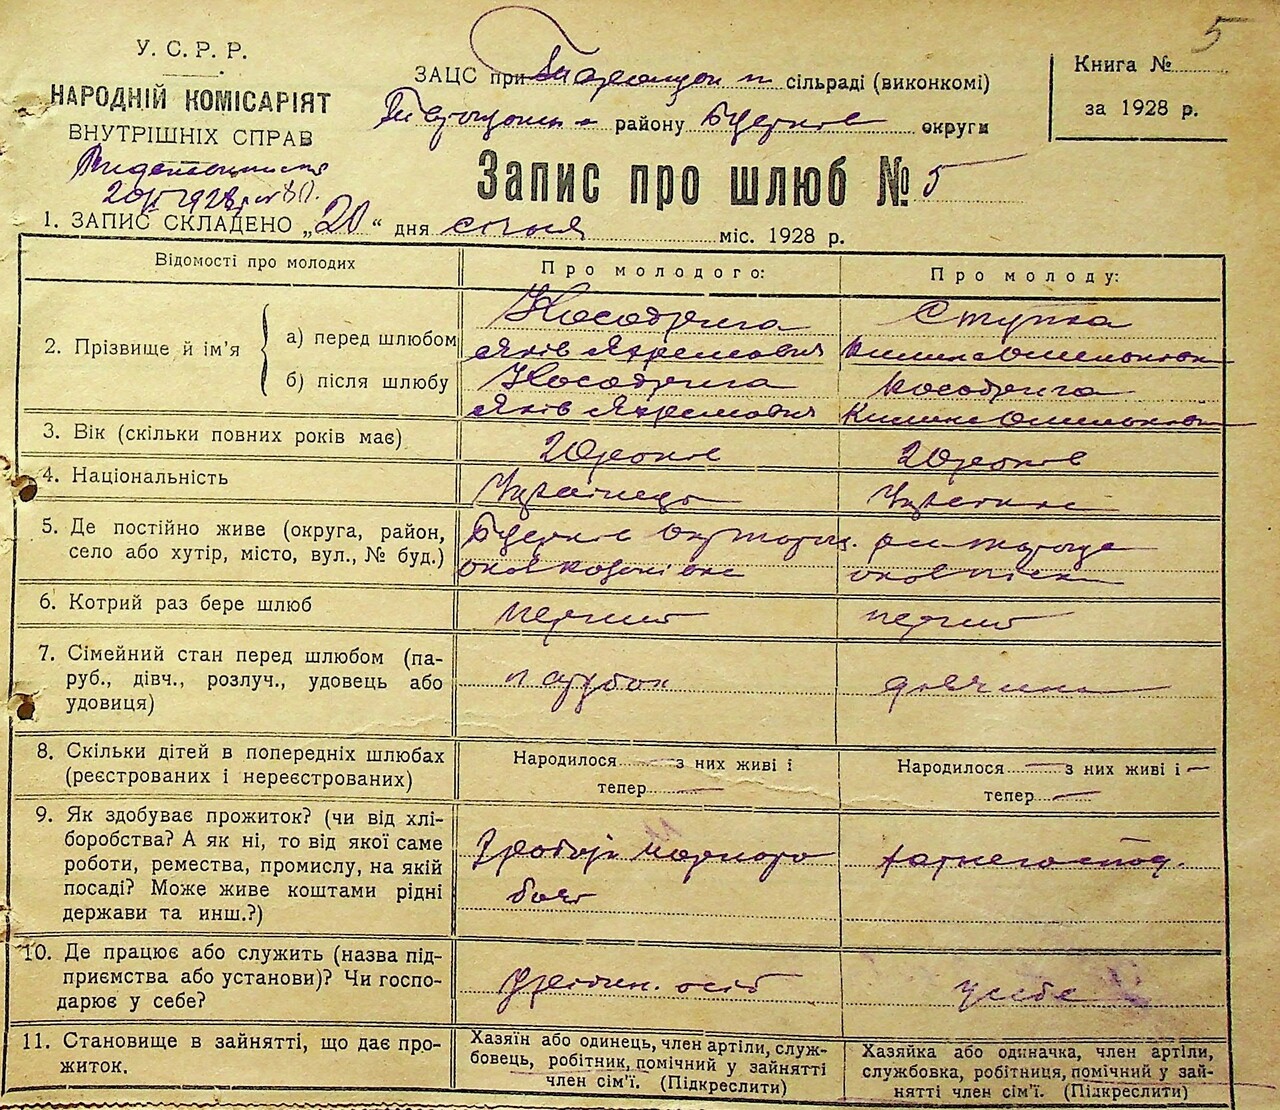 5
У. С. Р. Р.
НАРОДНІЙ КОМІСАРІЯТ
ВНУТРІШНІХ СПРАВ
ЗАЦС при сільраді (виконкомі)
району округи
Книга №
за 1928 р.
Запис про шлюб № 5
1. ЗАПИС СКЛАДЕНО „20“ дня січня міс. 1928 р.
Відомості про молодих
Про молодого:
Про молоду:
2. Прізвище й ім'я
а) перед шлюбом
Косодрига
Яків Яхремович
Ступка
б) після шлюбу
Косодрига
Яків Яхремович
Косодрига
3. Вік (скільки повних років має)
20 років
20 років
4. Національність
Українець
Українка
5. Де постійно живе (округа, район,
село або хутір, місто, вул., № буд.)
6. Котрий раз бере шлюб
перший
перший
7. Сімейний стан перед шлюбом (па-
руб., дівч., розлуч., удовець або
удовиця)
парубок
дівчина
8. Скільки дітей в попередніх шлюбах
(реєстрованих і нереєстрованих)
Народилося — з них живі і
тепер —
Народилося — з них живі і —
тепер —
9. Як здобуває прожиток? (чи від хлі-
боробства? А як ні, то від якої саме
роботи, ремества, промислу, на якій
посаді? Може живе коштами рідні
держави та инш.?)
10. Де працює або служить (назва під-
приємства або установи)? Чи госпо-
дарює у себе?
у себе
11. Становище в зайнятті, що дає про-
житок.
Хазяїн або одинець, член артіли, служ-
бовець, робітник, помічний у зайнятті
член сім'ї. (Підкреслити)
Хазяйка або одиначка, член артіли,
службовка, робітниця, помічний у зай-
нятті член сім'ї. (Підкреслити)